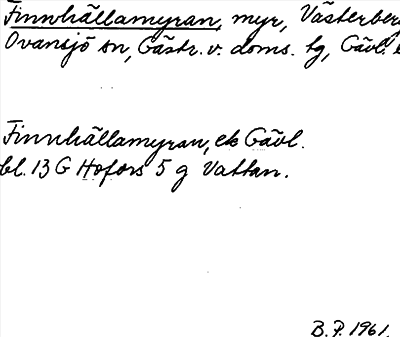 Finnhällamyran, myr, Västerberg
Ovansjö sn, Gästr. v. doms. tg, Gävl.
Finnhällamyran, ek Gävl.
bl. 13 G Hofors 5 g Vattan.
B.P. 1961.